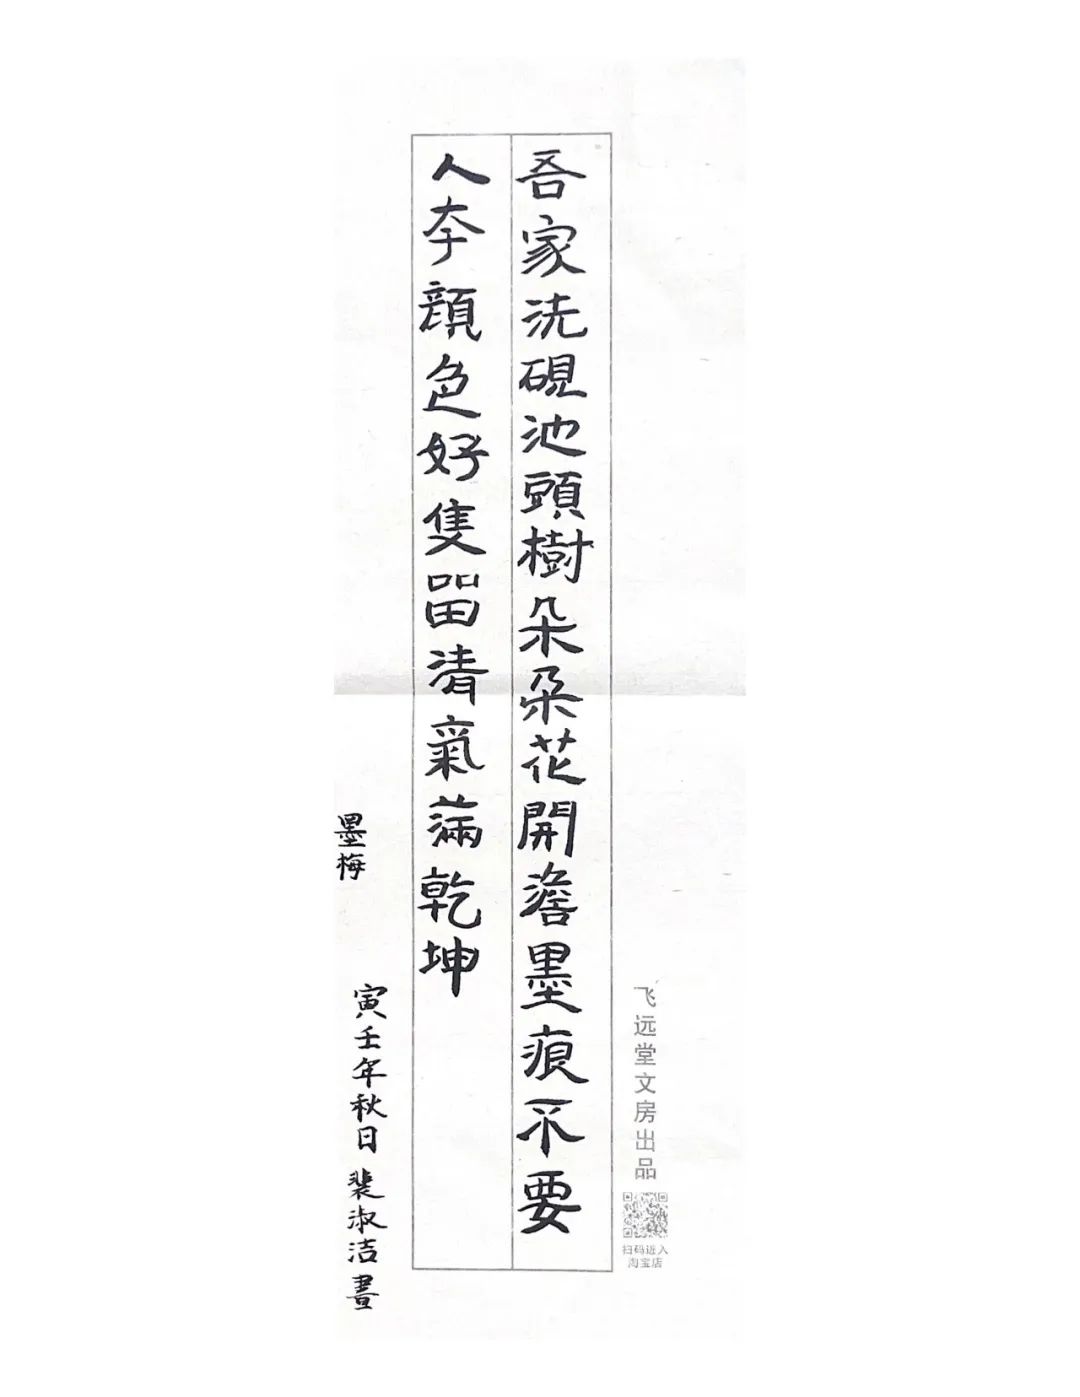 吾家洗硯池頭樹朵朵花開澹墨痕不要
人夲顔色好隻畱清氣滿乾坤
墨梅
寅壬年秋日裴淑洁書
飞远堂文房出品
扫码进入
淘宝店